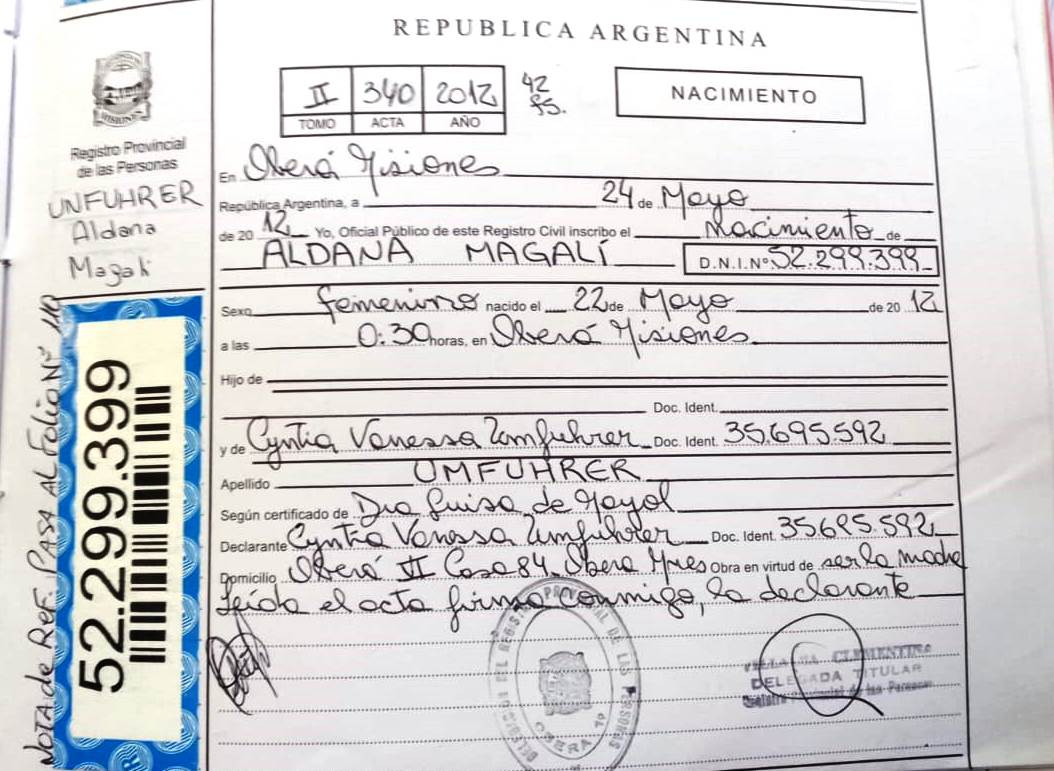 REPUBLICA ARGENTINA
II 340 2012 42 fs.
TOMO ACTA AÑO
NACIMIENTO
Registro Provincial
de las Personas
UNFUHRER
Aldana
Magali
NOTA de REF. PASA AL Folio Nº 110
52.299.399
En Oberá Misiones
República Argentina, a 24 de Mayo
de 2012 Yo, Oficial Público de este Registro Civil inscribo el Nacimiento de
ALDANA MAGALÍ D.N.I.Nº 52.299.399
Sexo femenino nacido el 22 de Mayo de 2012
a las 0:30 horas, en Oberá Misiones
Hijo de
Doc. Ident.
y de Cyntia Vanessa Umfuhrer Doc. Ident. 35.695.592
Apellido UMFUHRER
Según certificado de Dra Luisa de Mayol
Declarante Cyntia Vanessa Umfuhrer Doc. Ident. 35695.592
Domicilio Oberá II Casa 84. Oberá Mnes Obra en virtud de ser la madre
Leída el acta firma conmigo, la declarante
CLEMENTINA
DELEGADA TITULAR
Registro Provincial de las Personas
PROVINCIAL DE LAS PERSONAS
OBERA